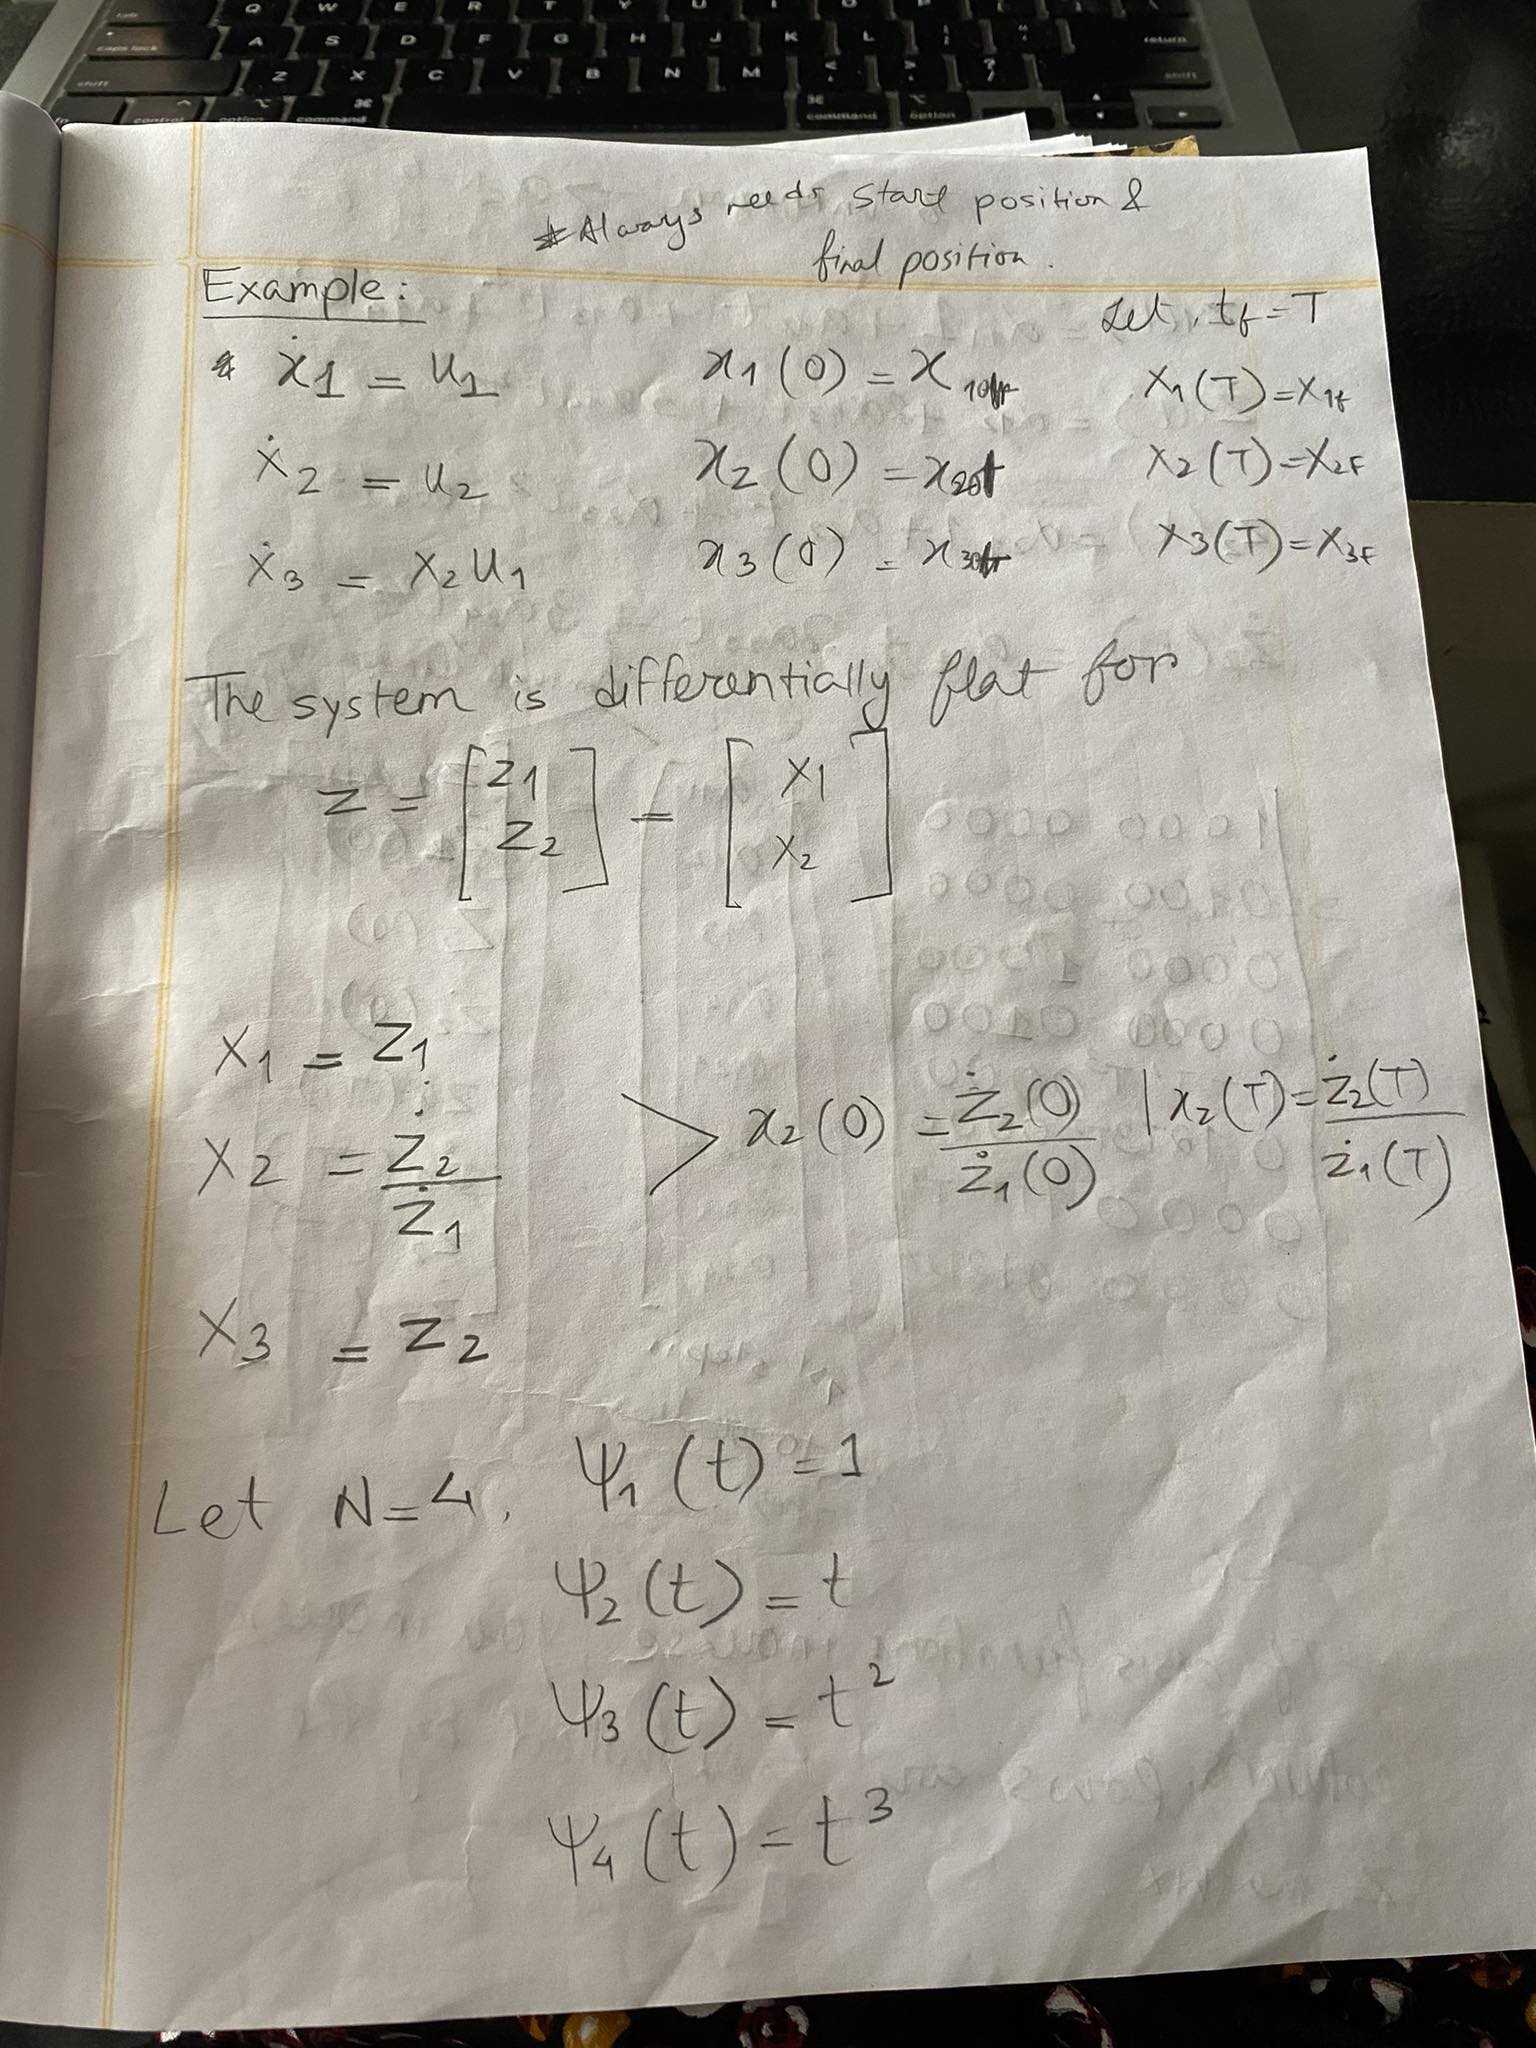 Q W E R T Y U I O P
caps lock A S D F G H J K L return
shift Z X C V B N M < > ? shift
fn control option command ⌘ ⌘ command option
* Always needs start position &
final position.
Example:
Let, tf = T
* ẋ1 = u1 x1(0) = x10 x1(T) = x1f
ẋ2 = u2 x2(0) = x20 x2(T) = x2F
ẋ3 = x2 u1 x3(0) = x30 x3(T) = x3F
The system is differentially flat for
z = [z1 z2] = [x1 x2]
x1 = z1
x2 = ż2/ż1 > x2(0) = ż2(0)/ż1(0) | x2(T) = ż2(T)/ż1(T)
x3 = z2
Let N=4, Ψ1(t) = 1
Ψ2(t) = t
Ψ3(t) = t²
Ψ4(t) = t³